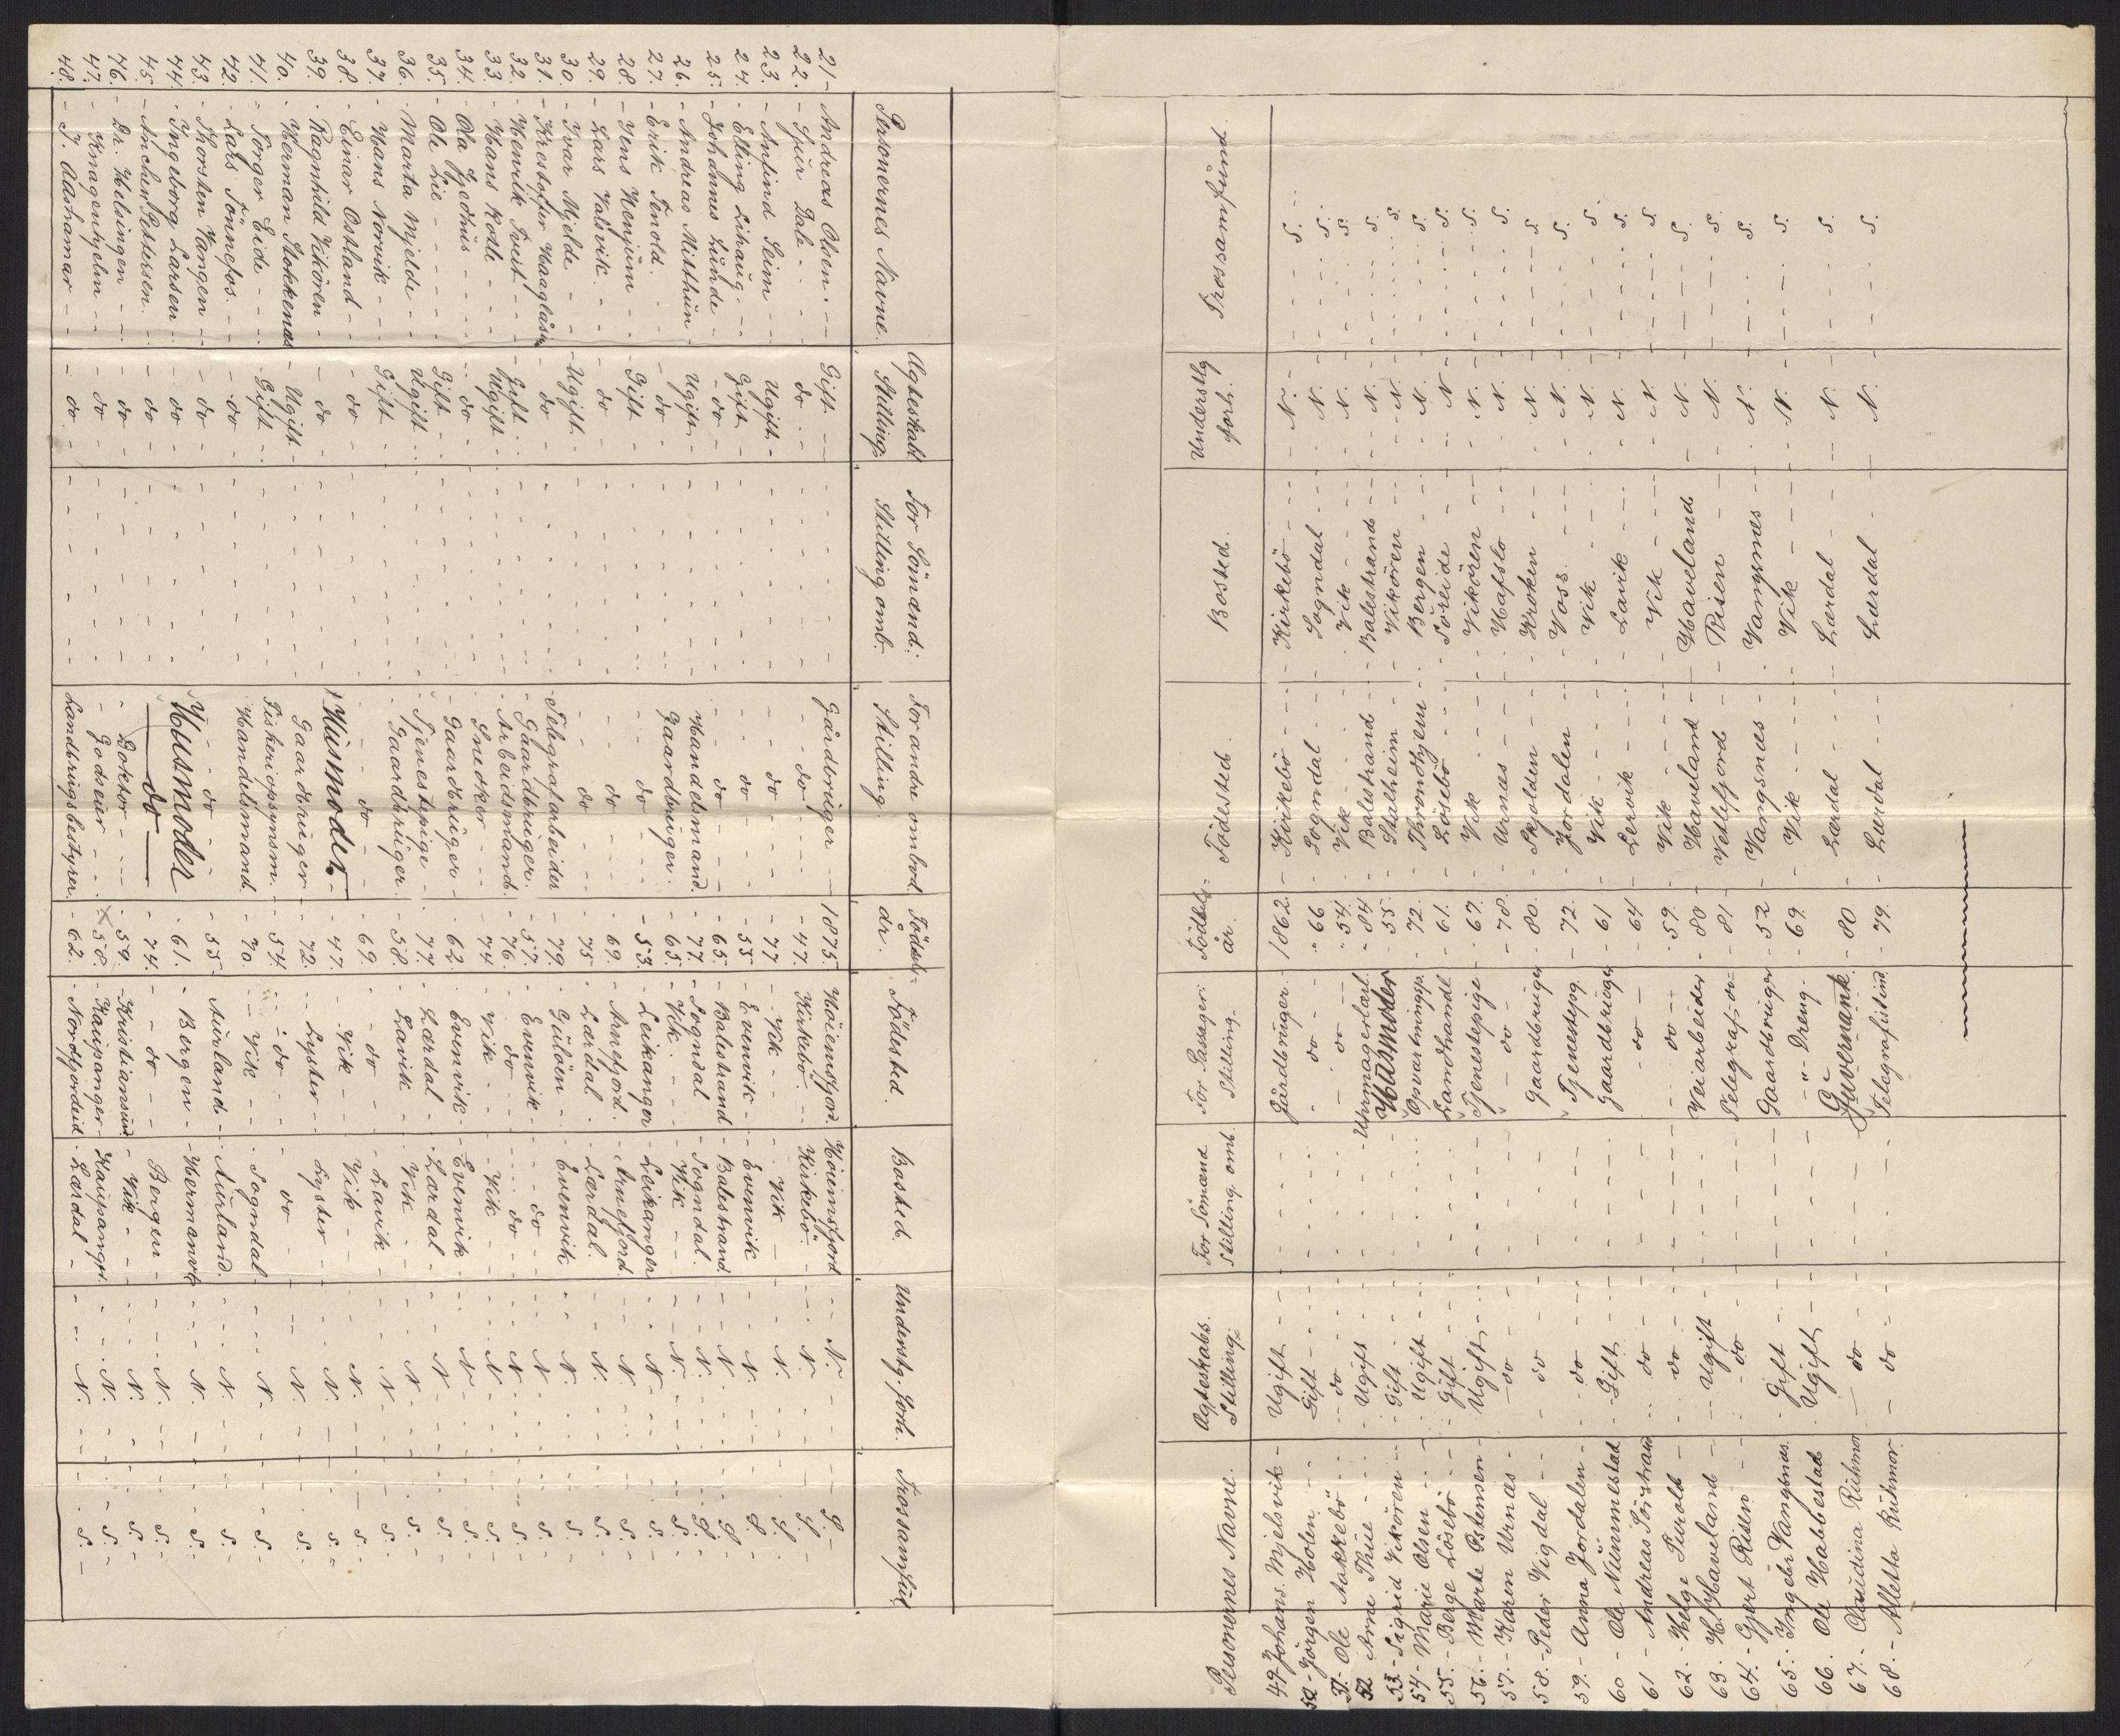 Personernes Navne. Ægteskabl. Stilling. For Sömænd: Stilling omb. For andre ombord Stilling. Födselsår. Födested. Bosted. Understg. forh. Trossamfund
21 - Andreas Olsen. - Gift - - - Gårdbruger - 1875. Höiensfjord. Höiensfjord - N. - S. -
22. - Sjur Dale - do - - - do - 47. Kirkebö. Kirkebö. - N. - S. -
23. - Anfind Seim - Ugift - - - do - 77 - Vik - Vik - N. - S. -
24. - Elling Lihaug - Gift - - - do - 55 - Evenvik - Evenvik - N. - S. -
25. - Johannes Lunde - do - - - do - 65. Balestrand - Balestrand - N. - S. -
26. - Andreas Midthun - Ugift - - - Handelsmand. - 77. - Sogndal - Sogndal. - N. - S. -
27. - Erik Tenold. - do - - - Gaardbruger. - 65. - Vik. - Vik - N. - S. -
28. - Jens Henjum - Gift - - - do - 53. - Leikanger - Leikanger - N. - S. -
29. - Lars Valsvik. - do - - - do - 69. - Arnefjord. - Arnefjord. - N. - S. -
30. - Ivar Mjelde - Ugift - - - do - 75 - Lærdal - Lærdal. - N. - S. -
31. - Kristofer Haaglåsen - do - - - Telegrafarbeider - 79. - Gulöen - Evenvik - N. - S. -
32. - Henrik Tveit - Gift - - - Gaardbruger. - 57. - Evenvik - do - N. - S. -
33. - Hans Kolle - Ugift - - - Arbeidsmand - 76. - do - do - N. - S. -
34. - Ola Gjedhus - do - - - Snedker - 74 - Vik - Vik - N. - S. -
35. - Ole Lie - Gift - - - Gaardbruger - 62 - Evenvik - Evenvik - N. - S. -
36. - Marta Mjelde - Ugift - - - Tjenestepige - 77. - Lærdal - Lærdal - N. - S. -
37. - Hans Norvik - Gift - - - Gaardbruger. - 58. - Lavik - Vik - N. - S. -
38. - Einar Ostland - do - - - do - 69. - do - Lavik - N. - S. -
39. - Ragnhild Vikören - do - - - Husmoder - 47. - Vik - Vik - N. - S. -
40. - Herman Stokkenæs - Ugift - - - Gaardbruger - 72. - Lyster - Lyster - N. - S. -
41. - Torger Eide - Gift - - - Fiskeriopsynsm. - 54. - do - do - N. - S. -
42. - Lars Tönnefos. - do - - - Handelsmand. - 70. - Vik - Sogndal - N. - S. -
43. - Thorsten Vangen - do - - - do - 55 - Aurland - Aurland. - N. - S. -
44. - Ingeborg Larsen - do - - - Husmoder - 61. - Bergen - Hermansverk - N. - S. -
45. - Ancher Pettersen. - do - - - do - 74. - do - Bergen - N. - S. -
46. - Dr. Helsingen - do - - - Doktor - 59. - Kristiansund - Vik - N. - S. -
47. - Knagenhjelm - do - - - Godseier - 58. - Kaupanger - Kaupanger. - N. - S. -
48. - J. Aashamar - do - - - Landbrugsbestyrer. - 62. - Nordfjordeid - Lærdal - N. - S. -
Personernes Navne. Ægteskabs. Stilling: For Sömænd Stilling. omb. For Passager: Stilling. Födselsår. Födested. Bosted. Understtg forh. Trossamfund.
49 - Johans. Mjelsvik - Ugift - - Gårdbruger. - 1862 - Kirkebö - Kirkebö - N. - S.
50 - Jörgen Holen. - Gift - - do - " 66 - Sogndal - Sogndal - N. - S.
51 - Ole Aakkebö - do - - do - " 54. Vik - Vik - N. - S.
52 Arne Thue - Ugift - - Urmagerlærl. " 84 - Balestrand - Balestrand - N. - S.
53. - Sigrid Vikören - Gift - - Husmoder 55. - Stalheim - Vikören - N. - S.
54 - Marie Olsen - Ugift - - Opvartningsp. 72. - Throndhjem - Bergen - N. - S.
55. - Berge Lösebö - Gift - - Landhandl. - 61. - Lösebö - Söreide - N - S.
56. - Marte Ostensen - Ugift - - Tjenestepige - 67. - Vik - Vikören - N. - S.
57. - Karen Urnæs - do - - do - 78. - Urnes - Hafslo - N. - S.
58. - Peder Vigdal - do - - Gaardbruger - 80. - Skjolden - Kroken - N. - S.
59. - Anna Jordalen - do - - Tjenestepg. - 72. - Jordalen - Voss. - N. - S.
60 - Ole Nummestad - Gift - - Gaardbruger - 61 - Vik - Vik - N. - S.
61 - Andreas Sörstrand - do - - do - 64 - Lervik - Lavik - N. - S.
62. - Helge Turold - do - - do - 59. - Vik - Vik - N. - S.
63. - H. Haveland - Ugift - - Veiarbeider - 80 - Haveland - Haveland - N. - S.
64. - Gjert Risen - do - - Telegraf. do - 81 - Vetlefjord - Risen - N. - S.
65. - Ingebr. Vangsnæs. - Gift - - Gaardbruger - 52 - Vangsnes - Vangsnes - N. - S.
66. Ole Habbestad - Ugift - - " - Dreng. - 69. - Vik - Vik - N. - S.
67. - Claudina Ruhmor - do - - Guvernante - 80 - Lærdal - Lærdal - N. - S.
68. - Alletta Ruhmor - do - - Telegrafistind - 79. - Lærdal - Lærdal - N. - S.